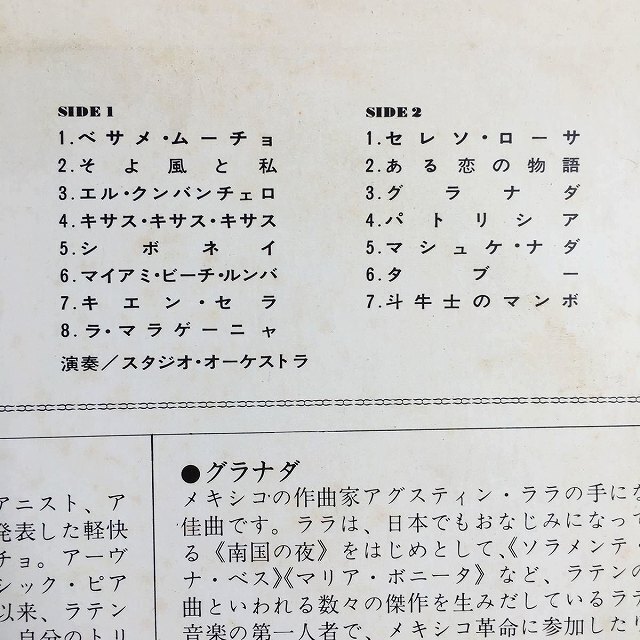 SIDE 1
1.ベサメ・ムーチョ
2.そよ風と私
3.エル・クンバンチェロ
4.キサス・キサス・キサス
5.シボネイ
6.マイアミ・ビーチ・ルンバ
7.キエン・セラ
8.ラ・マラゲーニャ
演奏／スタジオ・オーケストラ
SIDE 2
1.セレソ・ローサ
2.ある恋の物語
3.グラナダ
4.パトリシア
5.マシュケ・ナダ
6.タブー
7.斗牛士のマンボ
アニスト、ア
発表した軽快
チョ。アーヴ
シック・ピア
以来、ラテン
自分のトリ
●グラナダ
メキシコの作曲家アグスティン・ララの手にな
佳曲です。ララは、日本でもおなじみになって
る《南国の夜》をはじめとして、《ソラメンテ・
ナ・ベス》《マリア・ボニータ》など、ラテンの
曲といわれる数々の傑作を生みだしているララ
音楽の第一人者で、メキシコ革命に参加したい